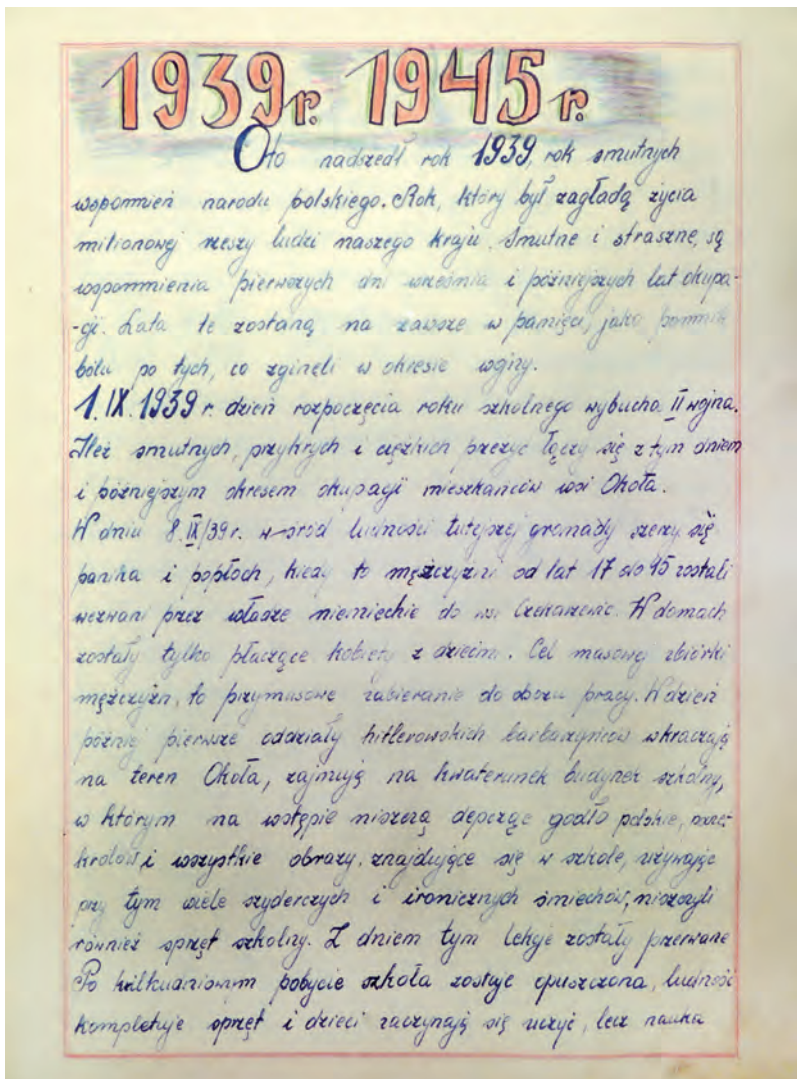 1939r. 1945r.
Oto nadszedł rok 1939, rok smutnych
wspomnień narodu polskiego. Rok, który był zagładą życia
milionowej rzeszy ludzi naszego kraju. Smutne i straszne, są
wspomnienia pierwszych dni września i późniejszych lat okupa-
-cji. Lata te zostaną na zawsze w pamięci, jako pomnik
bólu po tych, co zginęli w okresie wojny.
1.IX.1939r. dzień rozpoczęcia roku szkolnego wybucha II wojna.
Ileż smutnych, przykrych i ciężkich przeżyć łączy się z tym dniem
i późniejszym okresem okupacji mieszkańców wsi Okoła.
W dniu 8.IX/39r. w-śród ludności tutejszej gromady szerzy się
panika i popłoch, kiedy to mężczyzni od lat 17 do 45 zostali
wezwani przez władze niemieckie do wsi Czekarzewic. W domach
zostały tylko płaczące kobiety z dziećmi. Cel masowej zbiórki
mężczyzn, to przymusowe zabieranie do obozu pracy. W dzień
pózniej pierwsze oddziały hitlerowskich barbarzyńców wkraczają
na teren Okoła, zajmują na kwaterunek budynek szkolny,
w którym na wstępie niszczą depcząc godło polskie,
królów i wszystkie obrazy, znajdujące się w szkole, używając
przy tym wiele szyderczych i ironicznych śmiechów, niszczyli
również sprzęt szkolny. Z dniem tym lekcje zostały przerwane
Po kilkudniowym pobycie szkoła zostaje opuszczona, ludność
kompletuje sprzęt i dzieci zaczynają się uczyć, lecz nauka